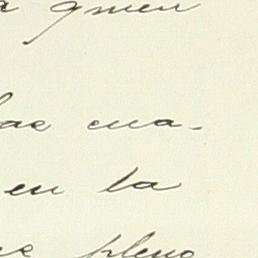 a quien
las cua-
en la
pleno